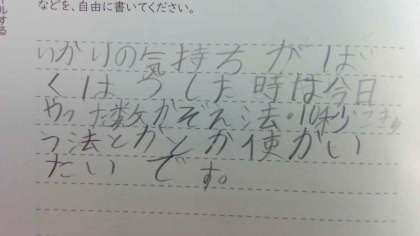 などを、自由に書いてください。
いかりの気持ちがば
くはつした時は今日
やった数かぞえ法・10秒
つ法とかとか使がい
たいです。